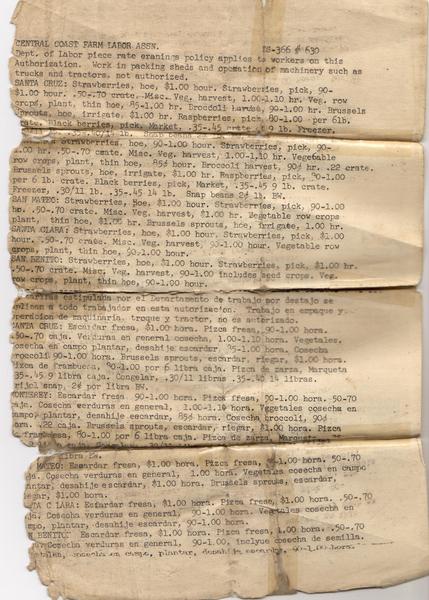 CENTRAL COAST FARM LABOR ASSN. ES-366 # 630
Dept. of Labor piece rate eranings policy applies to workers on this
Authorization. Work in packing sheds and operation of machinery such as
trucks and tractors, not authorized.
SANTA CRUZ: Strawberries, hoe, $1.00 hour. Strawberries, pick, 90-
$1.00 hour. .50-.70 crate. Misc. Veg. harvest, 1.00-1.10 hr. Veg. row
crops, plant, thin hoe, 85-1.00 hr. Broccoli harvest, 90-1.00 hr. Brussels
Sprouts, hoe, irrigate, $1.00 hr. Raspberries, pick, 80-1.00 per 6lb.
crate. Black berries, pick, Market, .35-.45 crate 9 lb. Freezer,
Snap beans 2
strawberries, hoe, $1.00 hour. Strawberries, pick, 90-
hr. .50-.70 crate. Misc. Veg. harvest, 1.00-1.10 hr. Vegetable
row crops, plant, thin hoe, 85¢ hour. Broccoli harvest, 90¢ hr. .22 crate.
Brussels sprouts, hoe, irrigate, $1.00 hr. Raspberries, pick, 80-1.00
per 6 lb. crate. Black berries, pick, Market, .35-.45 9 lb. crate.
Freezer, .30/11 lb. .35-.45 14 lb. Snap beans 2¢ lb. BW.
SAN MATEO: Strawberries, hoe, $1.00 hour. Strawberries, pick, 90-1.00
hr. .50-.70 crate. Misc. Veg. harvest, $1.00 hr. Vegetable row crops
plant, thin hoe, $1.00 hr. Brussels sprouts, hoe, irrigate, 1.00 hr.
SANTA CLARA: Strawberries, hoe, $1.00 hour. Strawberries, pick, $1.00
hour. .50-.70 crate. Misc. Veg. harvest, 90-1.00 hour. Vegetable row
crops, plant, thin hoe, 90-1.00 hour.
SAN BENITO: Strawberries, hoe, $1.00 hour. Strawberries, pick, $1.00 hr.
.50-.70 crate. Misc. Veg. harvest, 90-1.00 includes seed crops. Veg.
row crops, plant, thin hoe, 90-1.00 hour.
tarifas estipulada por el Departamento de trabajo por destajo se
aplican a todo trabajador en esta autorización. Trabajo en empaque y
operacion de maquinaria, troque y tractor, no es autorizado.
SANTA CRUZ: Escardar fresa, $1.00 hora. Pizca fresa, 90-1.00 hora.
.50-.70 caja. Verduras en general cosecha, 1.00-1.10 hora. Vegetales,
cosecha en campo plantar, desahije escardar, 85-1.00 hora. Cosecha
broccoli 90-1.00 hora. Brussels sprouts, escardar, riegar, $1.00 hora.
Pizca de frambuesa, 80-1.00 por 6 libra caja. Pizca de zarza, Marqueta
.35-.45 9 libra caja. Congelar, .30/11 libras .35-.40 14 libras.
Frijol snap, 2¢ por libra BW.
MONTEREY: Escardar fresa, 90-1.00 hora. Pizca fresa, 90-1.00 hora. .50-.70
caja. Cosecha verduras en general, 1.00-1.10 hora. Vegetales cosecha en
campo, plantar, desahije escardar, 85¢ hora. Cosecha broccoli, 90¢
hora. .22 caja. Brussels sprouts, escardar, riegar, $1.00 hora. Pizca
frambuesa, 80-1.00 por 6 libra caja. Pizca de zarza, Marqueta
libra BW.
MATEO: Escardar fresa, $1.00 hora. Pizca fresa, 90-1.00 hora. .50-.70
caja. Cosecha verduras en general, 1.00 hora. Vegetales cosecha en campo
plantar, desahije escardar, $1.00 hora. Brussels sprouts, escardar,
riegar, $1.00 hora.
SANTA CLARA: Escardar fresa, $1.00 hora. Pizca fresa, $1.00 hora. .50-.70
caja. Cosecha verduras en general, 90-1.00 hora. Vegetales cosecha en
campo, plantar, desahije escardar, 90-1.00 hora.
SAN BENITO: Escardar fresa, $1.00 hora. Pizca fresa, $1.00 hora. .50-.70
caja. Cosecha verduras en general, 90-1.00. incluye cosecha de semilla.
Vegetales, cosecha en campo, plantar, desahije escardar, 90-1.00 hora.